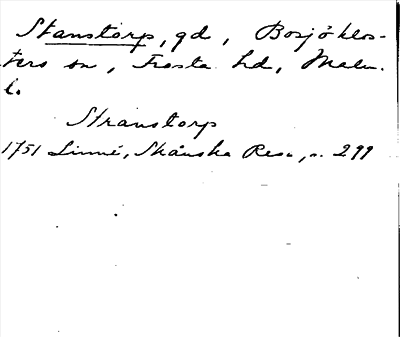 Stanstorp, gd, Bosjöklos-
ters sn, Frosta hd, Malm.
l.
Stranstorp
1751 Linné, Skånska Resa, s. 299